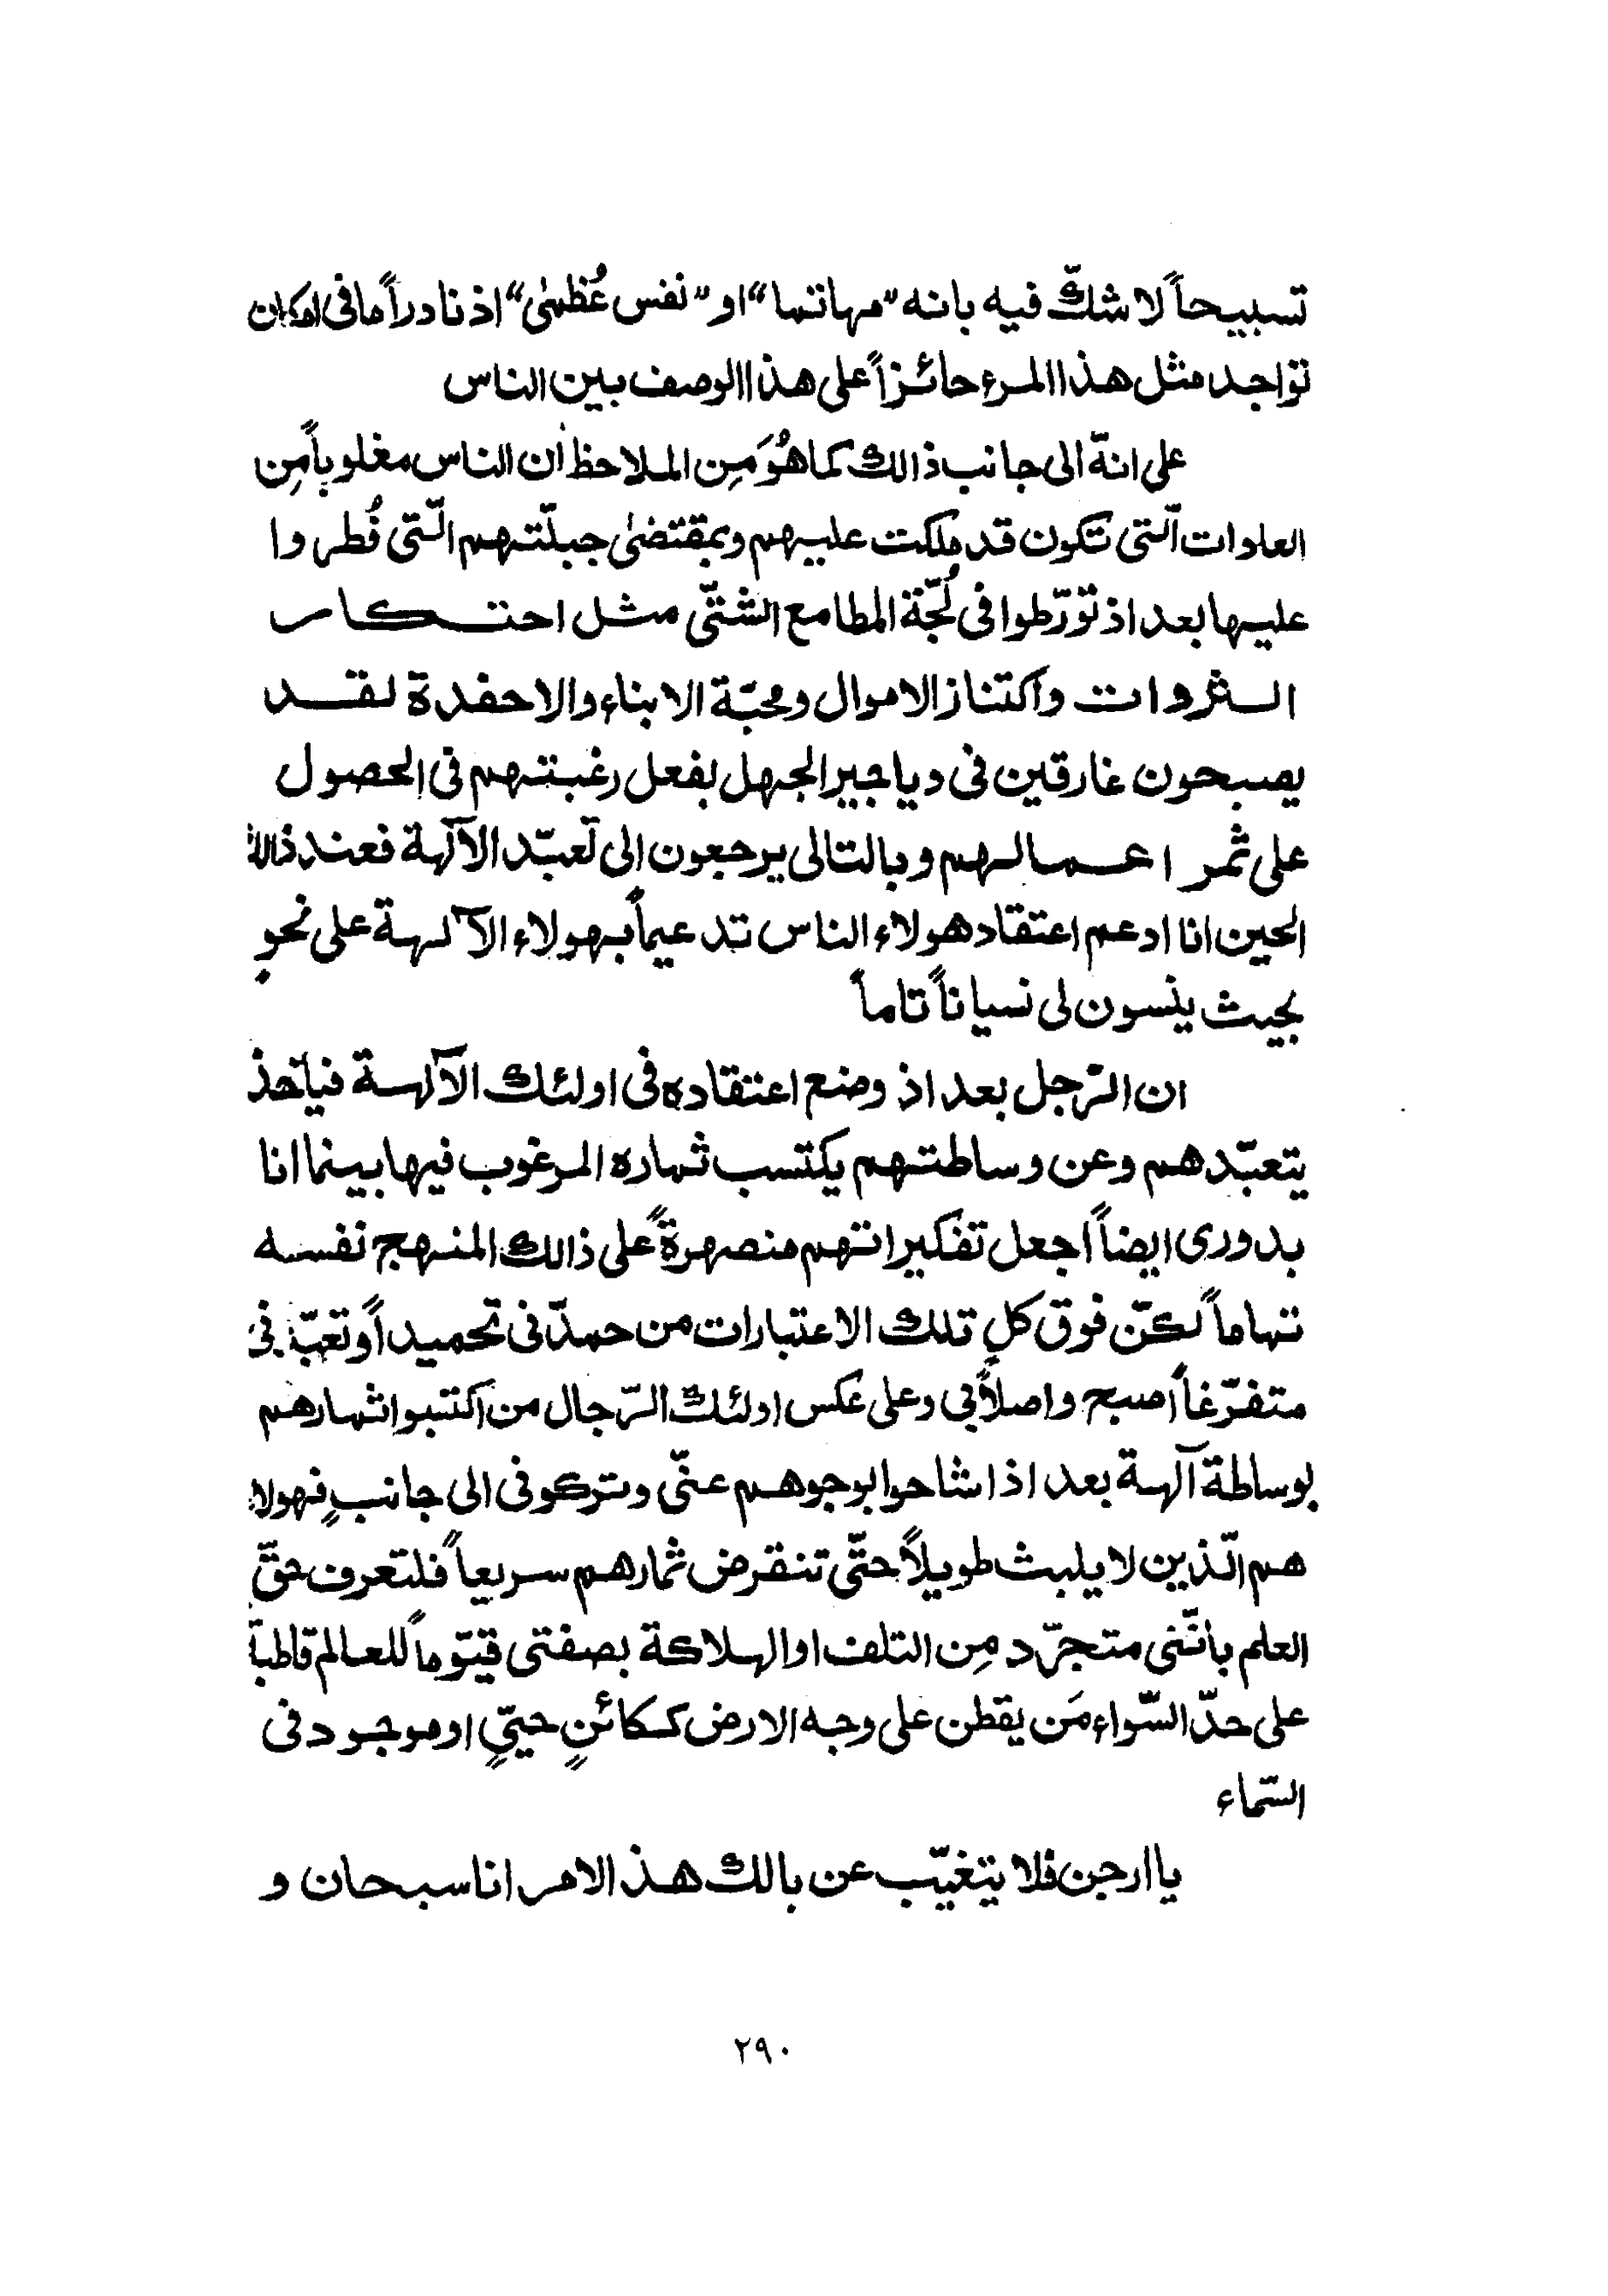 تسبيحاً لا شكّ فيه بانه "مهاتما" او "نفس عُظمىٰ" اذ نادراً ما فى امكان
تواجد مثل هذا المرء حائزاً على هذا الوصف بين الناس
على انهّ الى جانب ذالك كما هُوَ مِن الملاحظ أن الناس مغلوباً مِن
العادات الّتى تكون قد ملكت عليهم وبمقتضىٰ جبلّتهم الّتى فُطروا
عليها بعد اذ تورّطوا فى لُجّة المطامع الشتّى مثل احتكار
الثروات واكتناز الاموال ومحبّة الابناء والاحفدة لقد
يصبحون غارقين فى دياجير الجهل بفعل رغبتهم فى الحصول
على ثمر اعمالهم وبالتالى يرجعون الى تعبّد الآلهة فعند ذالك
الحين انا ادعم اعتقاد هولاء الناس تدعيماً بهولاء الآلهة على نحوٍ
بحيث ينسون لى نسياناً تاماً
ان الرّجل بعد اذ وضع اعتقاده فى اولئك الآلهة فيأخذ
يتعبّدهم وعن وساطتهم يكتسب ثماره المرغوب فيها بينما انا
بدورى ايضاً اجعل تفكيراتهم منصهرةً على ذالك المنهج نفسه
تماماً لكنّ فوق كلِ تلك الاعتبارات من حمدّ فى تحميداً وتعبّد فى
متفرّغاً أصبح واصلاً بى وعلى عكس اولئك الرّجال من اكتسبوا ثمارهم
بوساطة آلهة بعد اذ اشاحوا بوجوهم عنّى وتركونى الى جانبٍ فهولاء
هم الّذين لا يلبث طويلاً حتّى تنقرض ثمارهم سريعاً فلتعرف حقّ
العلم بأنّنى متجرّد مِن التلف او الهلاكة بصفتى قيّوماً للعالم قاطبةً
على حدّ السّواء مَن يقطن على وجه الارض ككائنٍ حيىٍّ او موجود فى
السّماء
يا ارجن فلا يتغيّب عن بالك هذ الامر انا سبحان و
٢٩٠